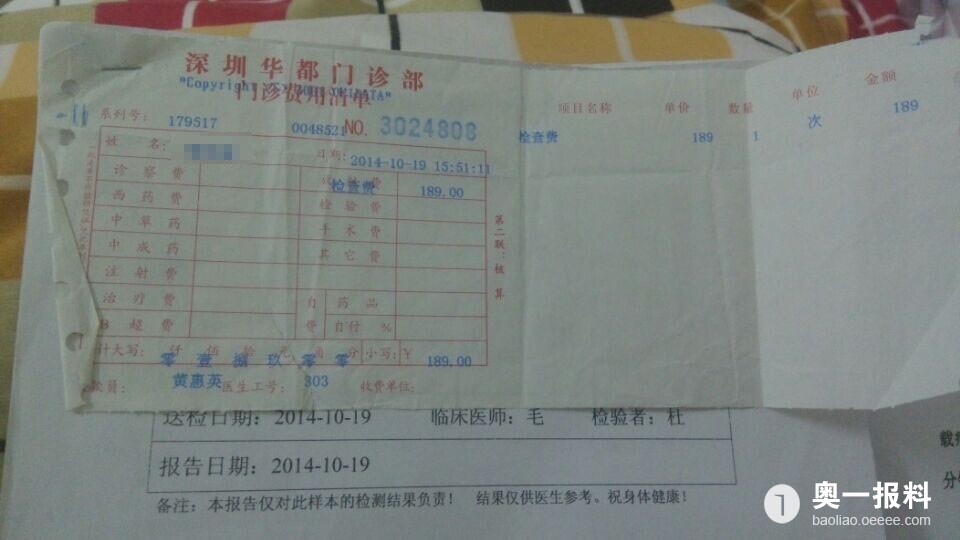 深圳华都门诊部
门诊费用清单
系列号: 179517 0048521 NO. 3024808
姓 名: 日期: 2014-10-19 15:51:11
诊 察 费 检查费 189.00
西 药 费 检 验 费
中 草 药 手 术 费
中 成 药 其 它 费
注 射 费
治 疗 费 自 药 品
B 超 费 费 自付 %
计大写: 仟 佰 拾 元 角 分 小写: ¥ 189.00
零 壹 捌 玖 零 零
款员: 黄惠英 医生工号: 303 收费单位:
第二联:核算
项目名称 单价 数量 单位 金额
检查费 189 1 次 189
送检日期: 2014-10-19 临床医师: 毛 检验者: 杜
报告日期: 2014-10-19
备注: 本报告仅对此样本的检测结果负责! 结果仅供医生参考。祝身体健康!
奥一报料
baoliao.oeeee.com